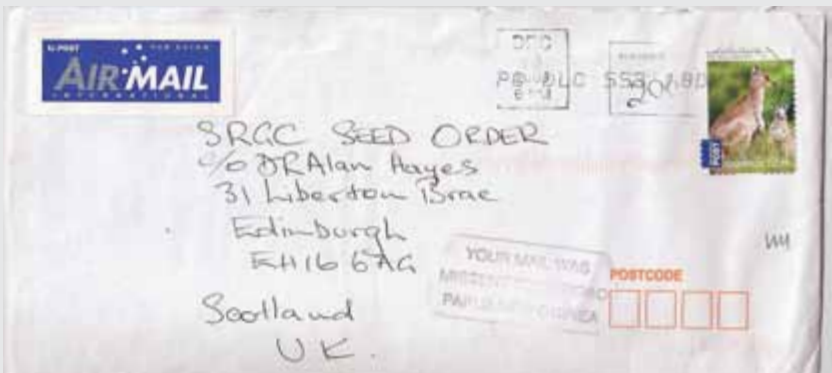 AIR MAIL
INTERNATIONAL
SRGC SEED ORDER
c/o DR Alan Hayes
31 Liberton Brae
Edinburgh
EH16 6AG
Scotland
UK.
YOUR MAIL WAS
MISSENT
PAPUA NEW GUINEA
POSTCODE
POST